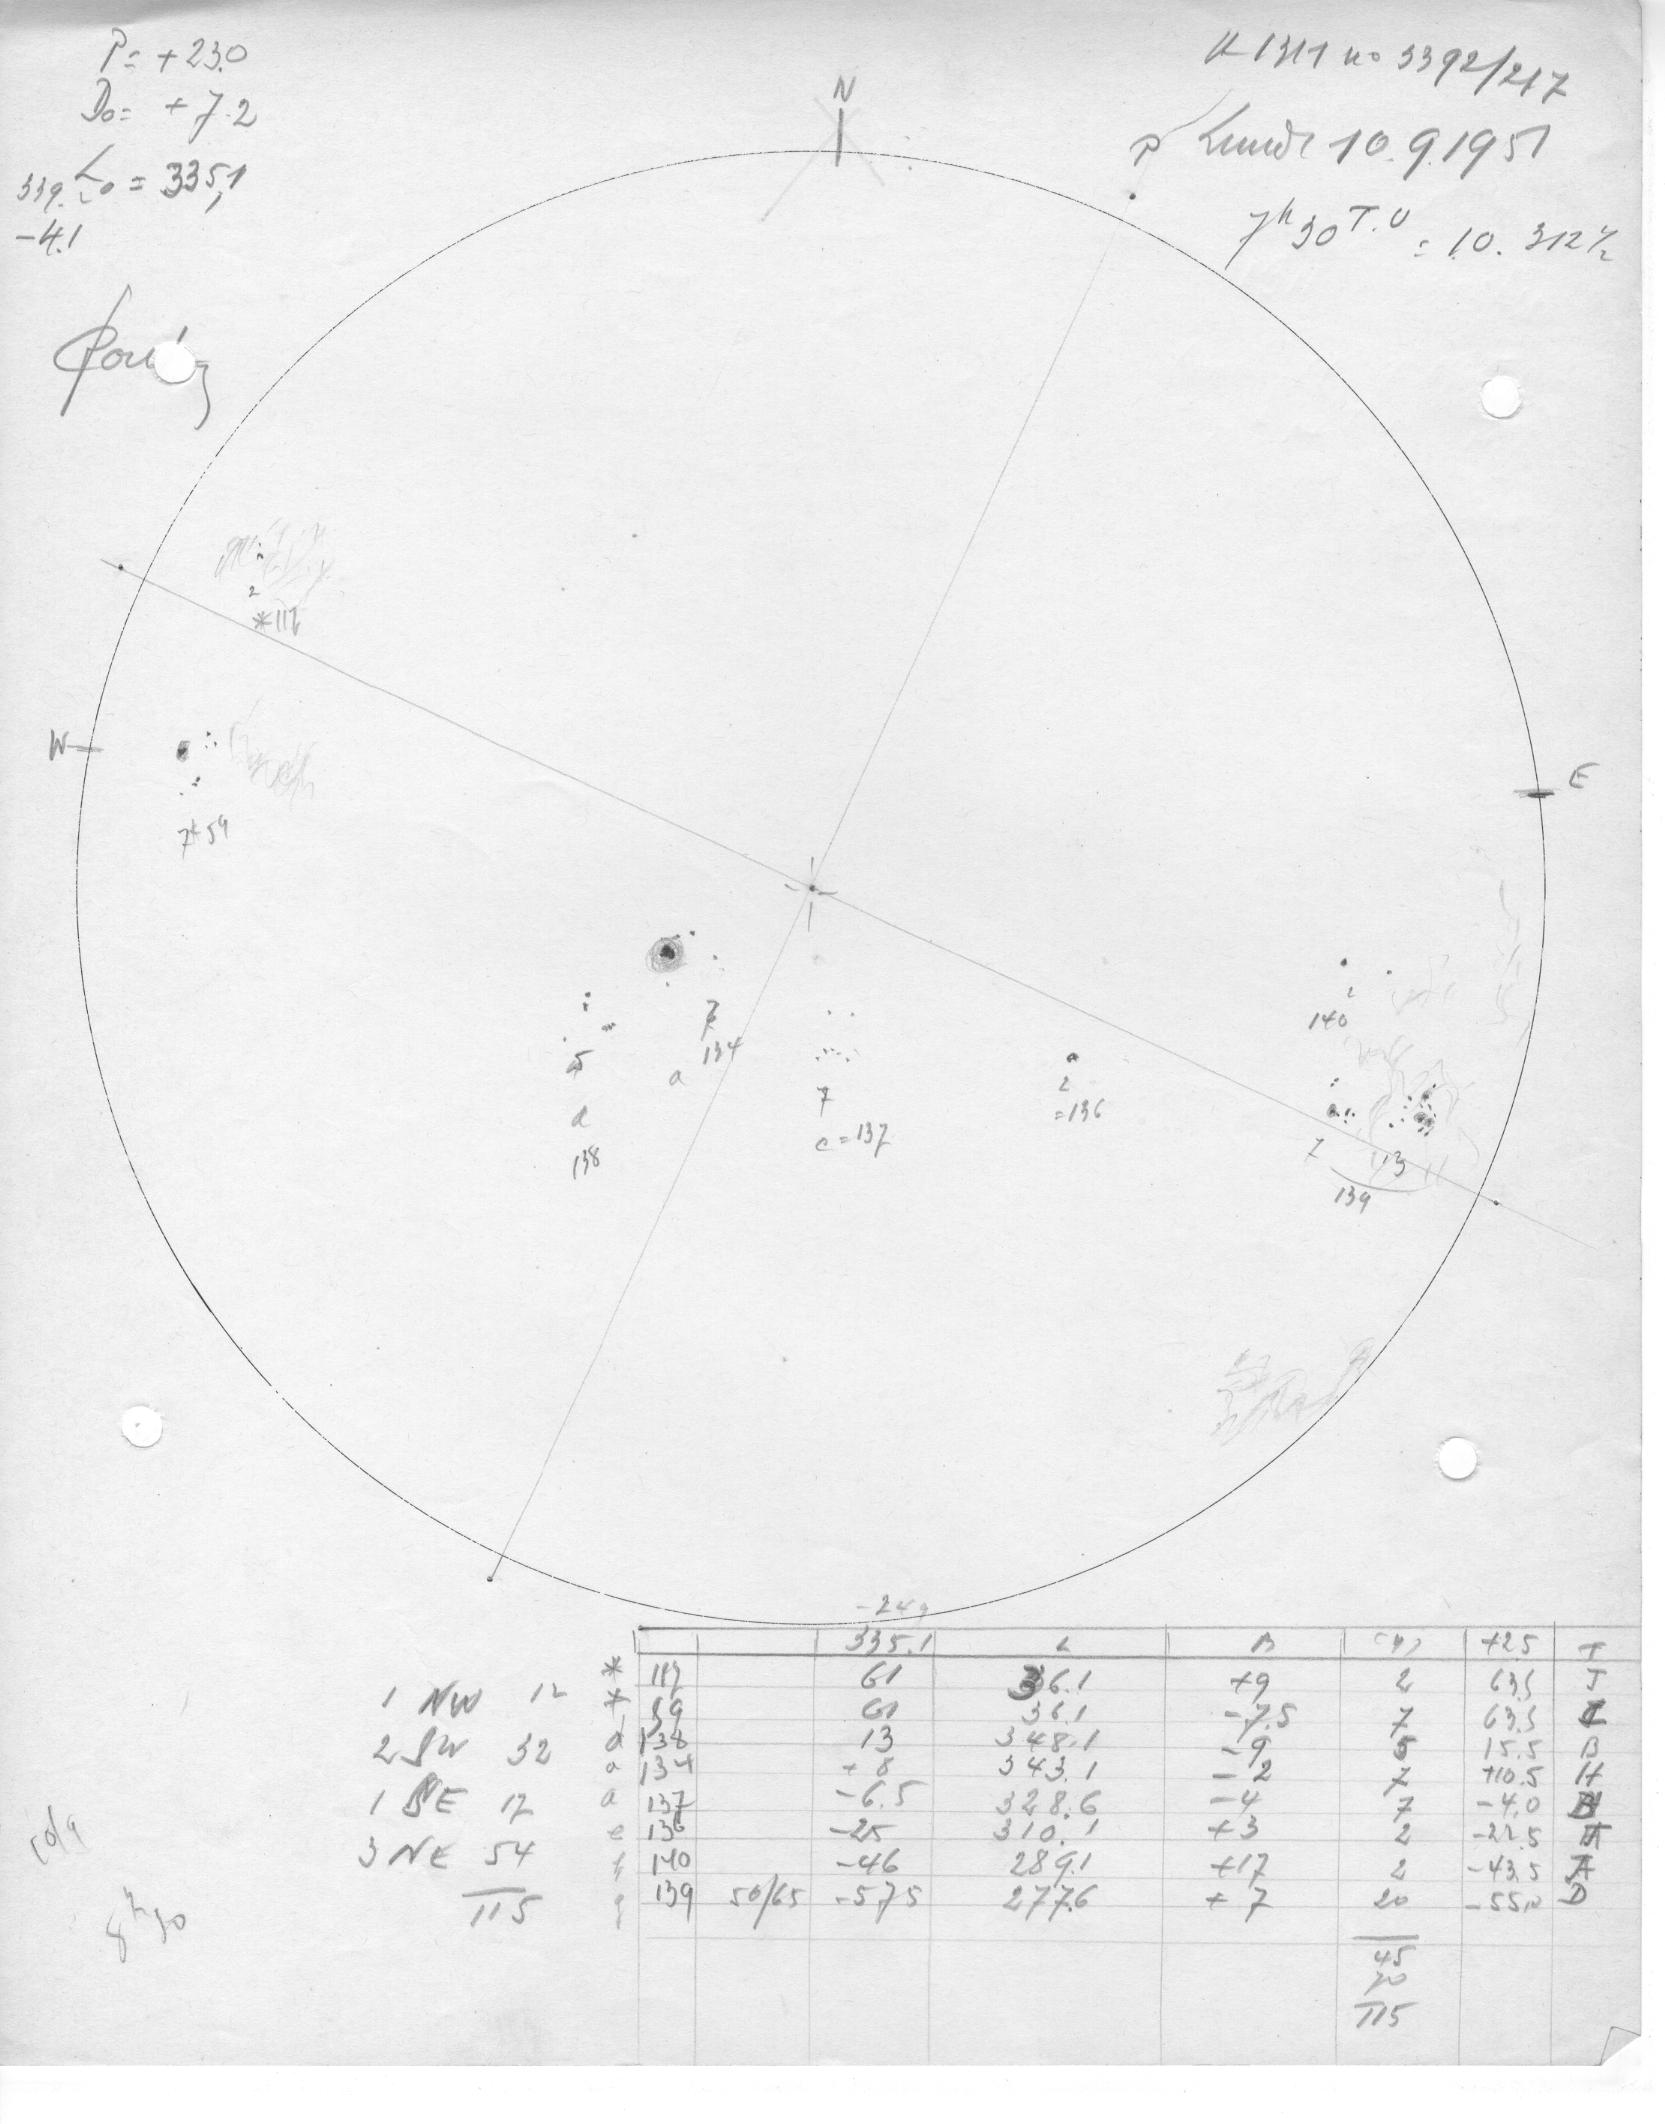 P= +23.0
B₀= +7.2
339. L₀ = 335,1
-4.1
N
no 3392/217
P
10.9.1951
7h30 T.U = 10.312
2
W
E
7
2
140
7
134
a
5
d
138
7
e=137
2
=136
7
13
139
-24
335.1 L B +25 T
* 61 36.1 +9 2 63.5 J
1 NW 12
61 36.1 -7.5 7 63.5
2 SW 32
d 138 13 348.1 -9 5 15.5 B
a 134 +8 343.1 -2 7 +10.5 H
1 SE 17
a 137 -6.5 328.6 -4 7 -4.0
e 136 -25 310.1 +3 2 -22.5
3 NE 54
140 -46 289.1 +17 2 -43.5 A
139 50/65 -57.5 277.6 +7 20 -55.0 D
115
45
70
115
10/9
8h30